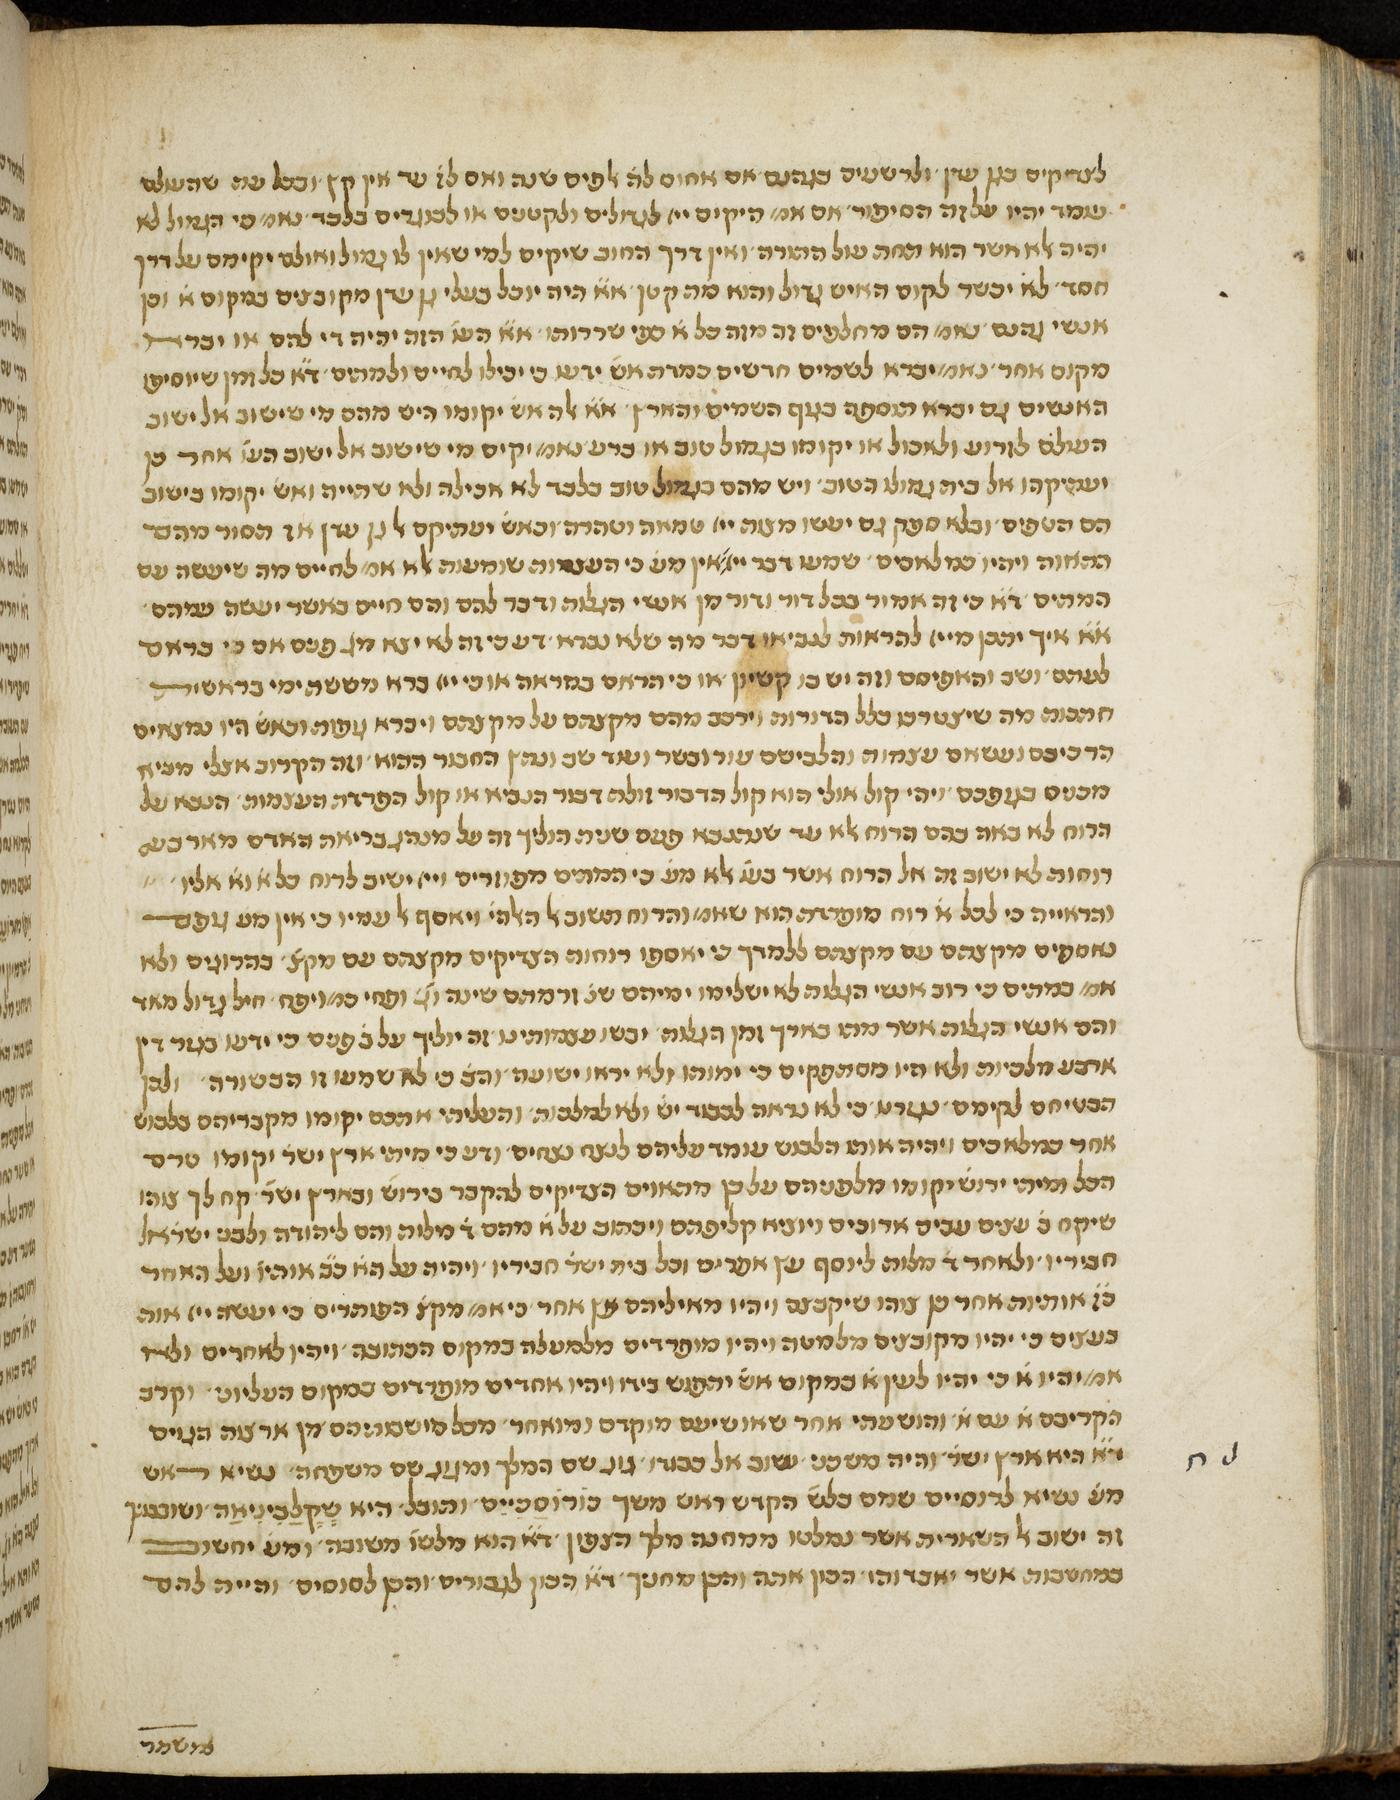 לצדיקים בגן עדן ולרשעים בגהנם אם אחוס להֹ אפים שנה ואם לזֹ עד אין קץ ובכל עת שהעולם
עומד יהיו על זה הסיפור אם אמ׳ היקים ייי לגדולים ולקטנים או לבוגדים בלבד נאמ׳ כי הגמול לא
יהיה לא אשר הוא תחת עול התורה ואין דרך החוב שיקים למי שאין לו גמול ואולם יקימם על דרך
חסד לאֹ יכשר לקום האיש גדול והוא מת קטן אֹאֹ היה יוכל בעלי גן עדן מקובצים במקום אֹ וכן
אנשי גהנם נאמ׳ הם מחלפים זה מזה כל אֹ כפי שררותו אֹאֹ העוֹ הזה יהיה די להם או יברא
מקום אחר נאמ׳ יברא לשמים חדשים כמדת אשֹ ידעו כי יכילו לחיים ולמתים דֹאֹ כל זמן שיוסיפו
האנשים גם יברא תוספת בגוף השמים והארץ אֹאֹ לה אשֹ יקומו היש מהם מי שישוב אל ישוב
העולם לזרוע ולאכול או יקומו בגמול טוב או ברע נאמ׳ יקים מי שישוב אל ישוב העוֹ אחר כן
יעתיקהו אל בית גמולו הטוב ויש מהם בגמול טוב בלבד לא אכילה ולא שתייה ואשֹ יקומו בישוב
הם הטפים ובלא ספק גם יעשו מצות ייי טמאה וטהרה וכאשֹ יעתיקם לֹ גן עדן אז תסור מהם
התאוה ויהיו כמלאכים שמעו דבר ייי אין מעֹ כי העצמות שומעות לא אמ׳ לחיים מה שיעשה עם
המתים דֹאֹ כי זה אמור בכל דור ודור מן אנשי הגלות ודבר להם והם חיים כאשר יעשה עמהם
אֹאֹ איך יתכן מייי להראות לנביאו דבר מה שלא נברא דע כי זה לא יצא מגֹ פנים אם כי בראם
לעתם ושב והאפיסם וזה יש בו קשיון או כי הראם במראה או כי ייי ברא מששת ימי בראשית
חתכות מה שיצטרכו כלל הדורות וירכב מהם מקצתם על מקצתם ויברא גופות וכאשֹ היו נמצאים
הרכיבם ועשאם עצמות והלבישם עור ובשר ועוד שב ונתץ החבור ההוא וזה הקרוב אצלי מביא
מבנים בגופכם ויהי קול אולי הוא קול הדבור זולת דבור הנביא או קול הפרדת העצמות הנבא על
הרוח לא באה בהם הרוח לֹא עד שנתנבא פעם שנית הוליך זה על מנהג בריאת האדם מארבע
רוחות לא ישוב זה אל הרוח אשר בעוֹ לא מעֹ כי המתים מפוזרים וייי ישיב לרוח כל אֹ ואֹ אליו
והראייה כי לכל אֹ רוח מופרדת הוא שאמ׳ והרוח תשוב לֹ האלהיֹ ויאסף לֹ עמיו כי אין מעֹ גופם
נאספים מקצתם עם מקצתם ללמדך כי יאספו רוחות הצדיקים מקצתם עם מקצֹ כהרוגים ולא
אמ׳ כמתים כי רוב אנשי הגלות לא ישלימו ימיהם שנֹ ורמתם שינה וגֹ ופחי כמ׳ ויפח חיל גדול מאד
והם אנשי הגלות אשר מתו באורך זמן הגלות יבשו עצמותינו זה יוליך על בֹ פנים כי ידעו בגזר דין
ארבע מלכיות ולא היו מסתפקים כי ימותו ולא יראו ישועה והבֹ כי לא שמעו זו הבשורה ולכן
הבטיחם לקימם נגזרנו כי לא נראה לכבוד ישֹ ולא למלכות והעליתי אתכם יקומו מקבריהם בלבוש
אחר כמלאכים ויהיה אותו הלבוש עומד עליהם לנצח נצחים ודע כי מיתי ארץ ישרֹ יקומו טרם
הכל ומיתי ירושֹ יקומו מלפניהם על כן מתאוים הצדיקים להקבר בירושֹ ובארץ ישרֹ קח לך צוהו
שיקח בֹ עצים עבים ארוכים ויוציא קליפתם ויכתוב על אֹ מהם דֹ מלות והם ליהודה ולבני ישראל
חביריו ולאחר דֹ מלות ליוסף עץ אפרים וכל בית ישרֹ חביריו ויהיה על האֹ כֹבֹ אותיוֹ ועל האחר
כֹזֹ אותיות אחר כן צוהו שיקבצם ויהיו מאיליהם עץ אחר כי אמ׳ מקצֹ הפותרים כי יעשה ייי אות
בעצים כי יהיו מקובצים מלמטה ויהיו מופרדים מלמעלה במקום הכתובה ויהיו לאחדים ולא
אמ׳ יהיו אֹ כי יהיו לעץ אֹ במקום אשֹ יתפוש בידו ויהיו אחדים מופרדים במקום העליוני וקרב
הקריבם אֹ עם אֹ והושעתי אחר שאושיעם מוקדם ומואחר מכל מושבותיהם מן ארצות הגוים
דֹאֹ היא ארץ ישרֹ והיה משכני ישוב אל כבודו גוג שם המלך ומגוג שם משפחה נשיא ראש
מעֹ נשיא לרוסייס שמם בלשֹ הקדש ראש משך כֹורוסַבִייַס ותובל היא שקלבִינְיַאַה ושובבתיך
זה ישוב לֹ השארית אשר נמלטו ממחנה מלך הצפון דֹאֹ הוא מלשוֹ משובה ומעֹ יחשוב
במחשבות אשר יאבדוהו הכון אתה והכן מחניך דֹאֹ הכון לגבורים והכן לסוסים והיית להם
למשמר
לח